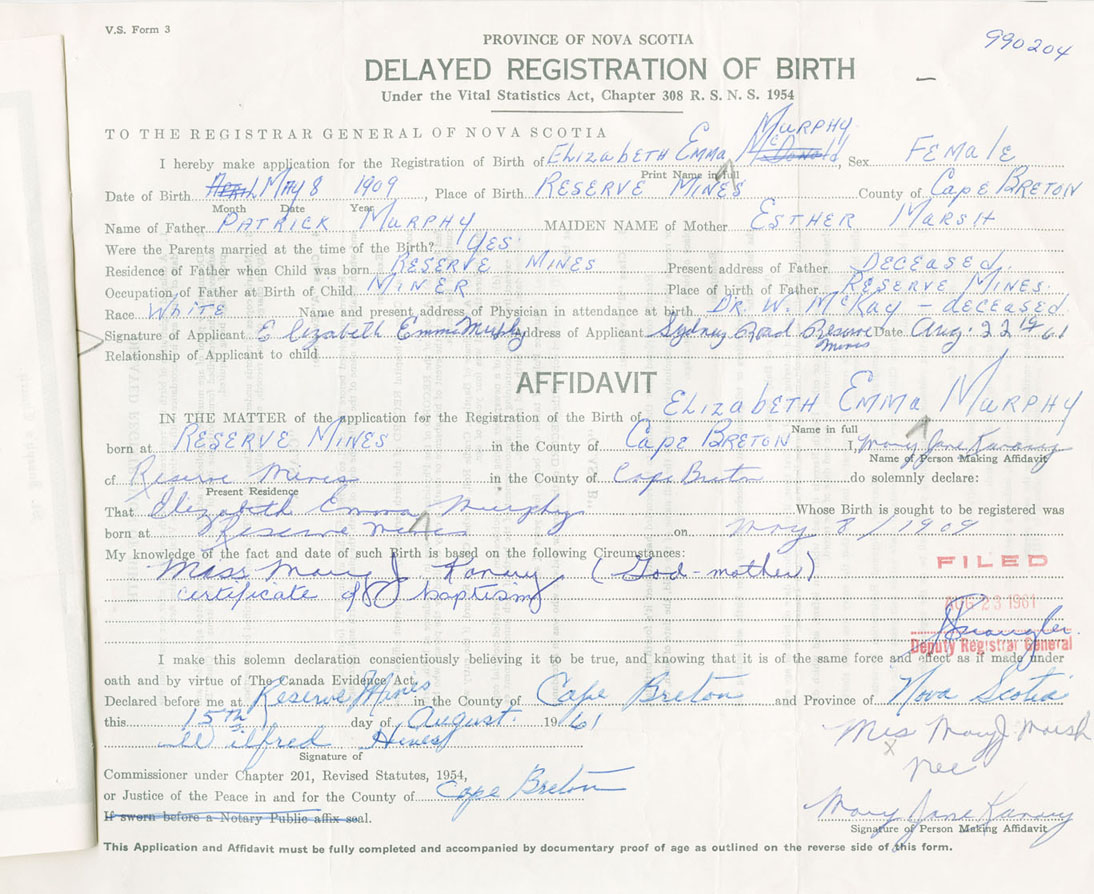 V.S. Form 3
990204
PROVINCE OF NOVA SCOTIA
DELAYED REGISTRATION OF BIRTH
Under the Vital Statistics Act, Chapter 308 R. S. N. S. 1954
TO THE REGISTRAR GENERAL OF NOVA SCOTIA
MURPHY
I hereby make application for the Registration of Birth of ELIZABETH EMMA McDonald, Sex FEMALE
Print Name in full
Date of Birth MAY 8 1909, Place of Birth RESERVE MINES County of CAPE BRETON
Month Date Year
Name of Father PATRICK MURPHY MAIDEN NAME of Mother ESTHER MARSH
Were the Parents married at the time of the Birth? YES
Residence of Father when Child was born RESERVE MINES Present address of Father DECEASED.
Occupation of Father at Birth of Child MINER Place of birth of Father RESERVE MINES.
Race WHITE Name and present address of Physician in attendance at birth DR. W. McKAY - deceased
Signature of Applicant Elizabeth Emma Murphy Address of Applicant Sydney Road Reserve Mines Date Aug. 22 1961
Relationship of Applicant to child
AFFIDAVIT
IN THE MATTER of the application for the Registration of the Birth of ELIZABETH EMMA MURPHY
Name in full
born at RESERVE MINES in the County of CAPE BRETON I, Mary Jane Kanary
Name of Person Making Affidavit
of Reserve Mines in the County of Cape Breton do solemnly declare:
Present Residence
That Elizabeth Emma Murphy Whose Birth is sought to be registered was
born at Reserve Mines on May 8/1909
My knowledge of the fact and date of such Birth is based on the following Circumstances:
Mary J. Kanary (God-mother)
certificate of baptism
FILED
AUG 23 1961
Deputy Registrar General
I make this solemn declaration conscientiously believing it to be true, and knowing that it is of the same force and effect as if made under
oath and by virtue of The Canada Evidence Act.
Declared before me at Reserve Mines in the County of Cape Breton and Province of Nova Scotia
this 15th day of August. 1961
Wilfred Hines
Signature of
Mrs Mary J Marsh
nee
Commissioner under Chapter 201, Revised Statutes, 1954,
or Justice of the Peace in and for the County of Cape Breton
If sworn before a Notary Public affix seal.
Mary Jane Kanary
Signature of Person Making Affidavit
This Application and Affidavit must be fully completed and accompanied by documentary proof of age as outlined on the reverse side of this form.